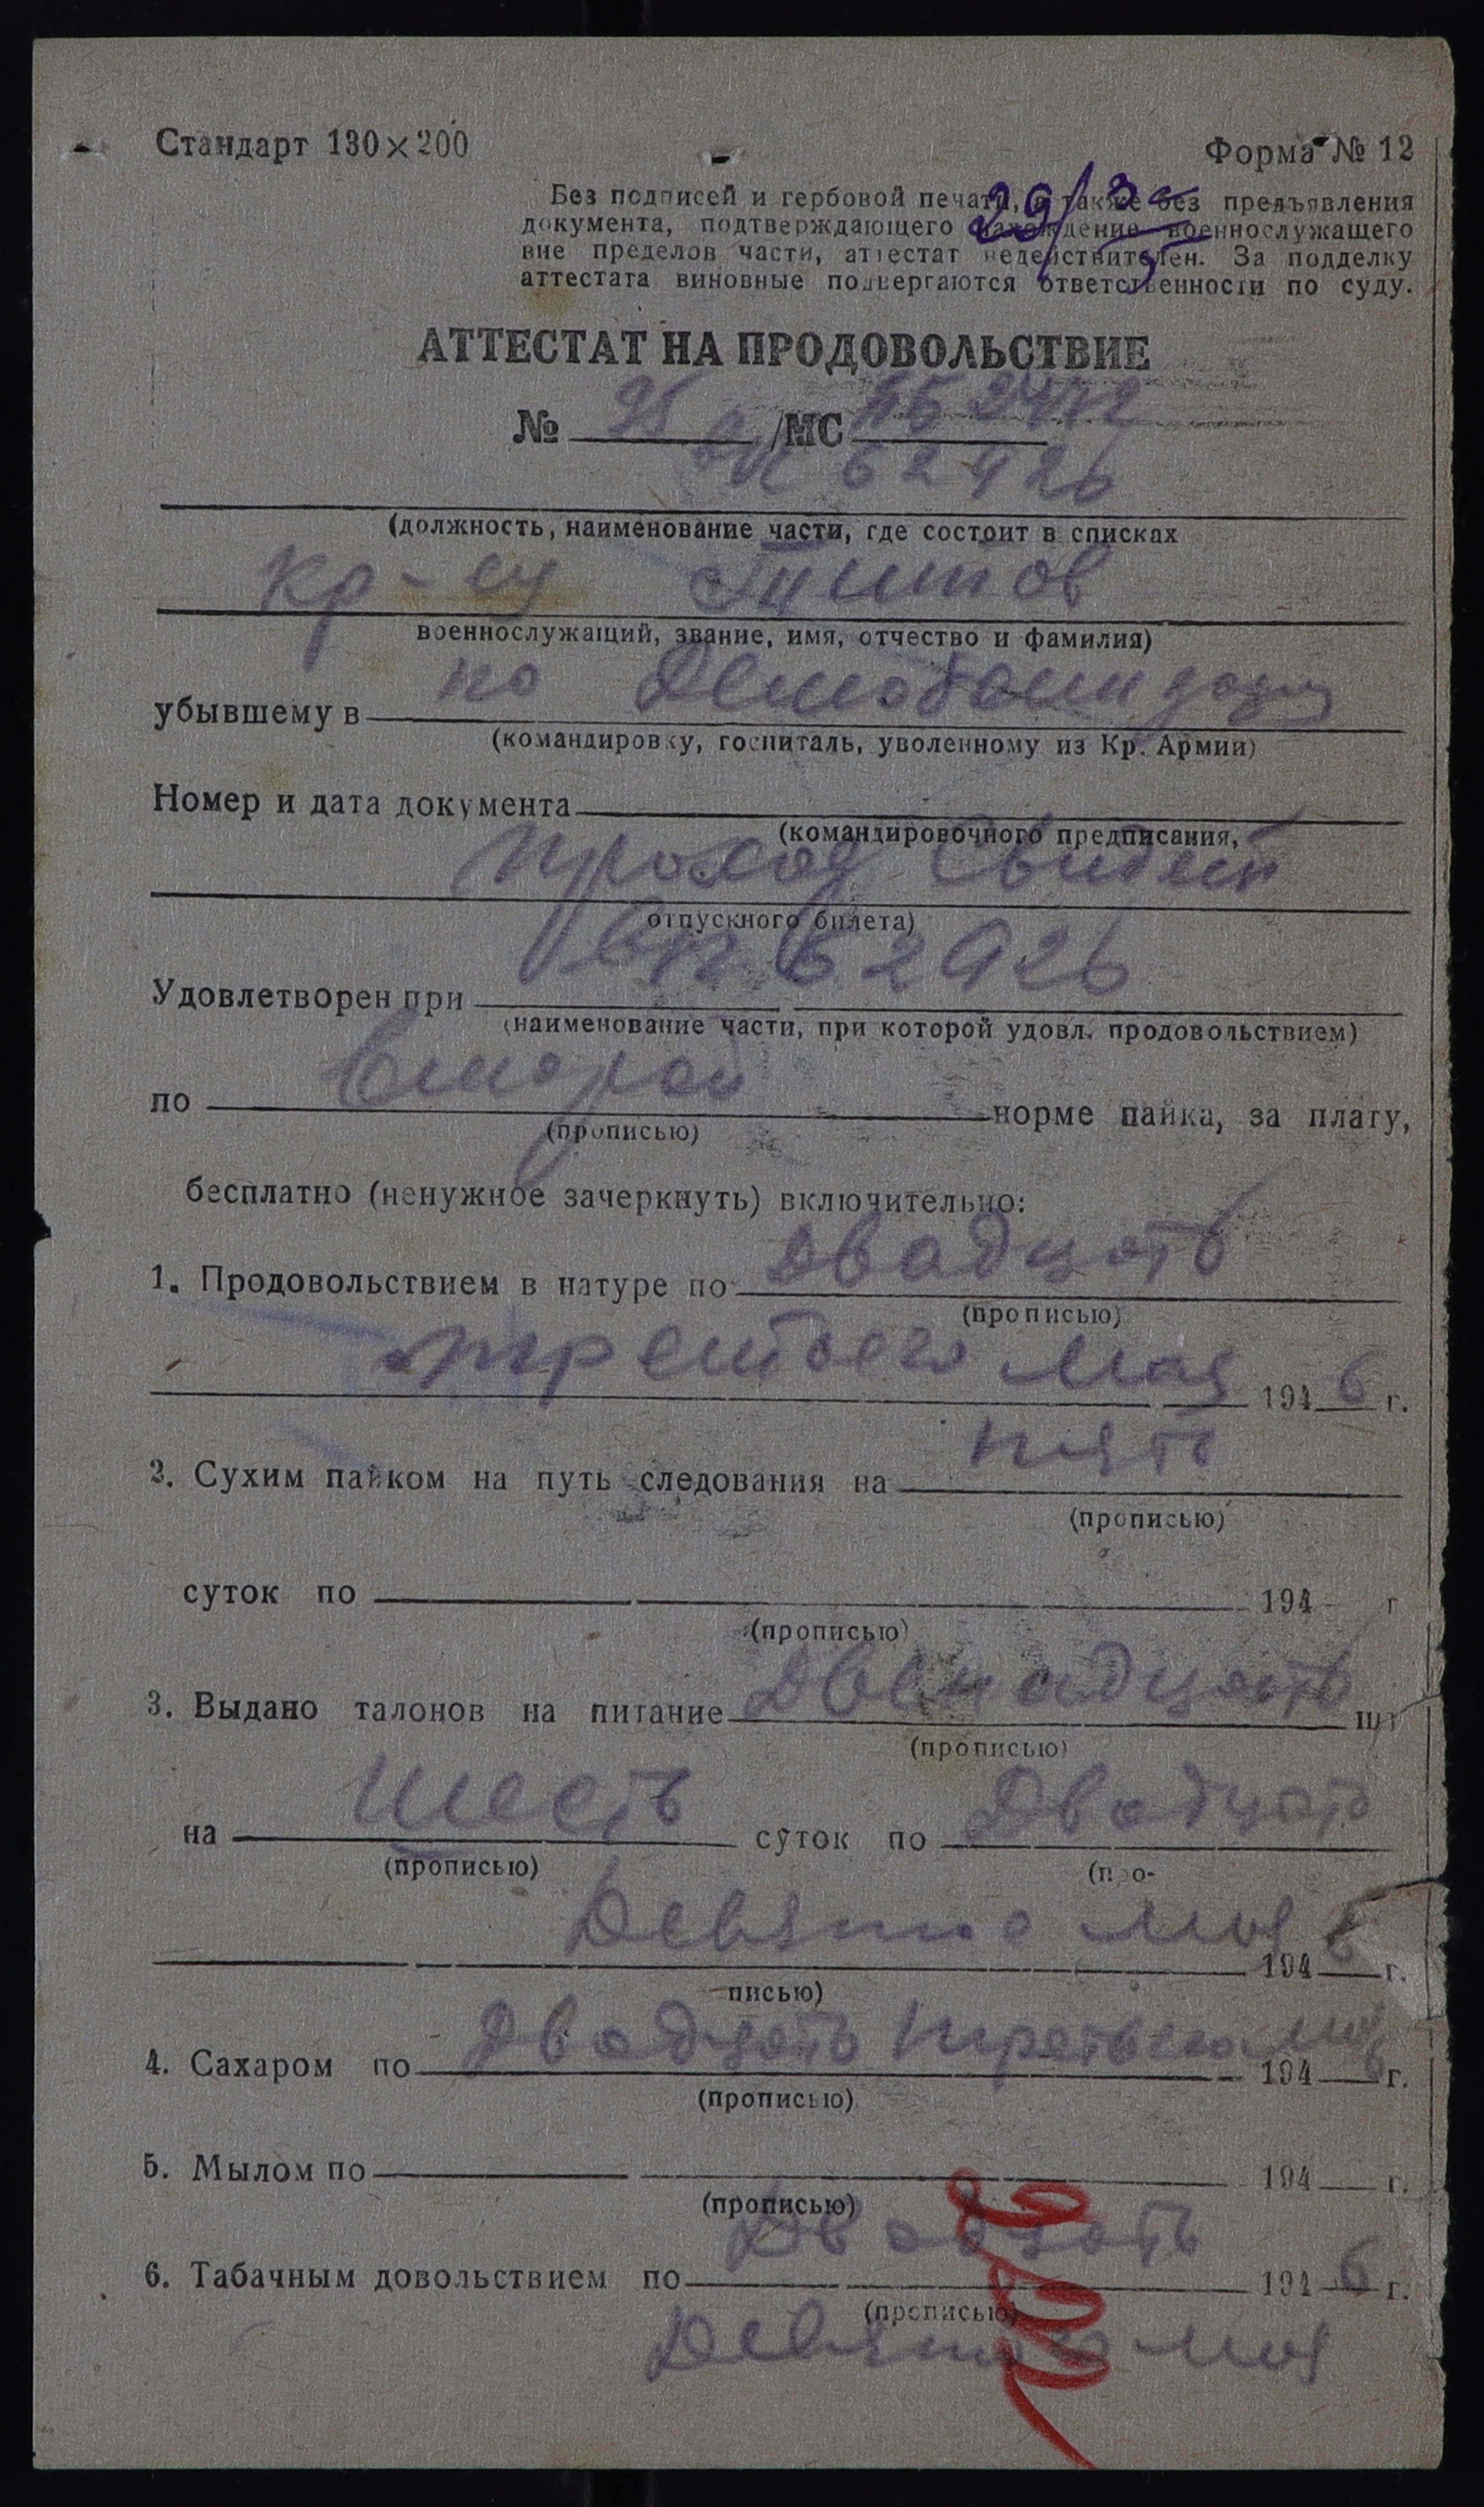 Стандарт 130×200
Форма № 12
29/5
Без подписей и гербовой печати, а также без предъявления
документа, подтверждающего нахождение военнослужащего
вне пределов части, аттестат недействителен. За подделку
аттестата виновные подвергаются ответственности по суду.
АТТЕСТАТ НА ПРОДОВОЛЬСТВИЕ
№ 95 /МС
62926
(должность, наименование части, где состоит в списках
кр-ец Титов
военнослужащий, звание, имя, отчество и фамилия)
убывшему в по
(командировку, госпиталь, уволенному из Кр. Армии)
Номер и дата документа
(командировочного предписания,
проход свидет
отпускного билета)
Удовлетворен при 62926
(наименование части, при которой удовл. продовольствием)
по второй норме пайка, за плату,
(прописью)
бесплатно (ненужное зачеркнуть) включительно:
1. Продовольствием в натуре по двадцать
(прописью)
третьего мая 1946 г.
2. Сухим пайком на путь следования на пять
(прописью)
суток по 194 г
(прописью)
3. Выдано талонов на питание двенадцать шт
(прописью)
на шесть суток по двадцать
(прописью) (про-
девятое мая 1946 г.
писью)
4. Сахаром по двадцать третьего мая 1946 г.
(прописью)
5. Мылом по 194 г.
(прописью)
6. Табачным довольствием по двадцать 1946 г.
(прописью)
девятого мая